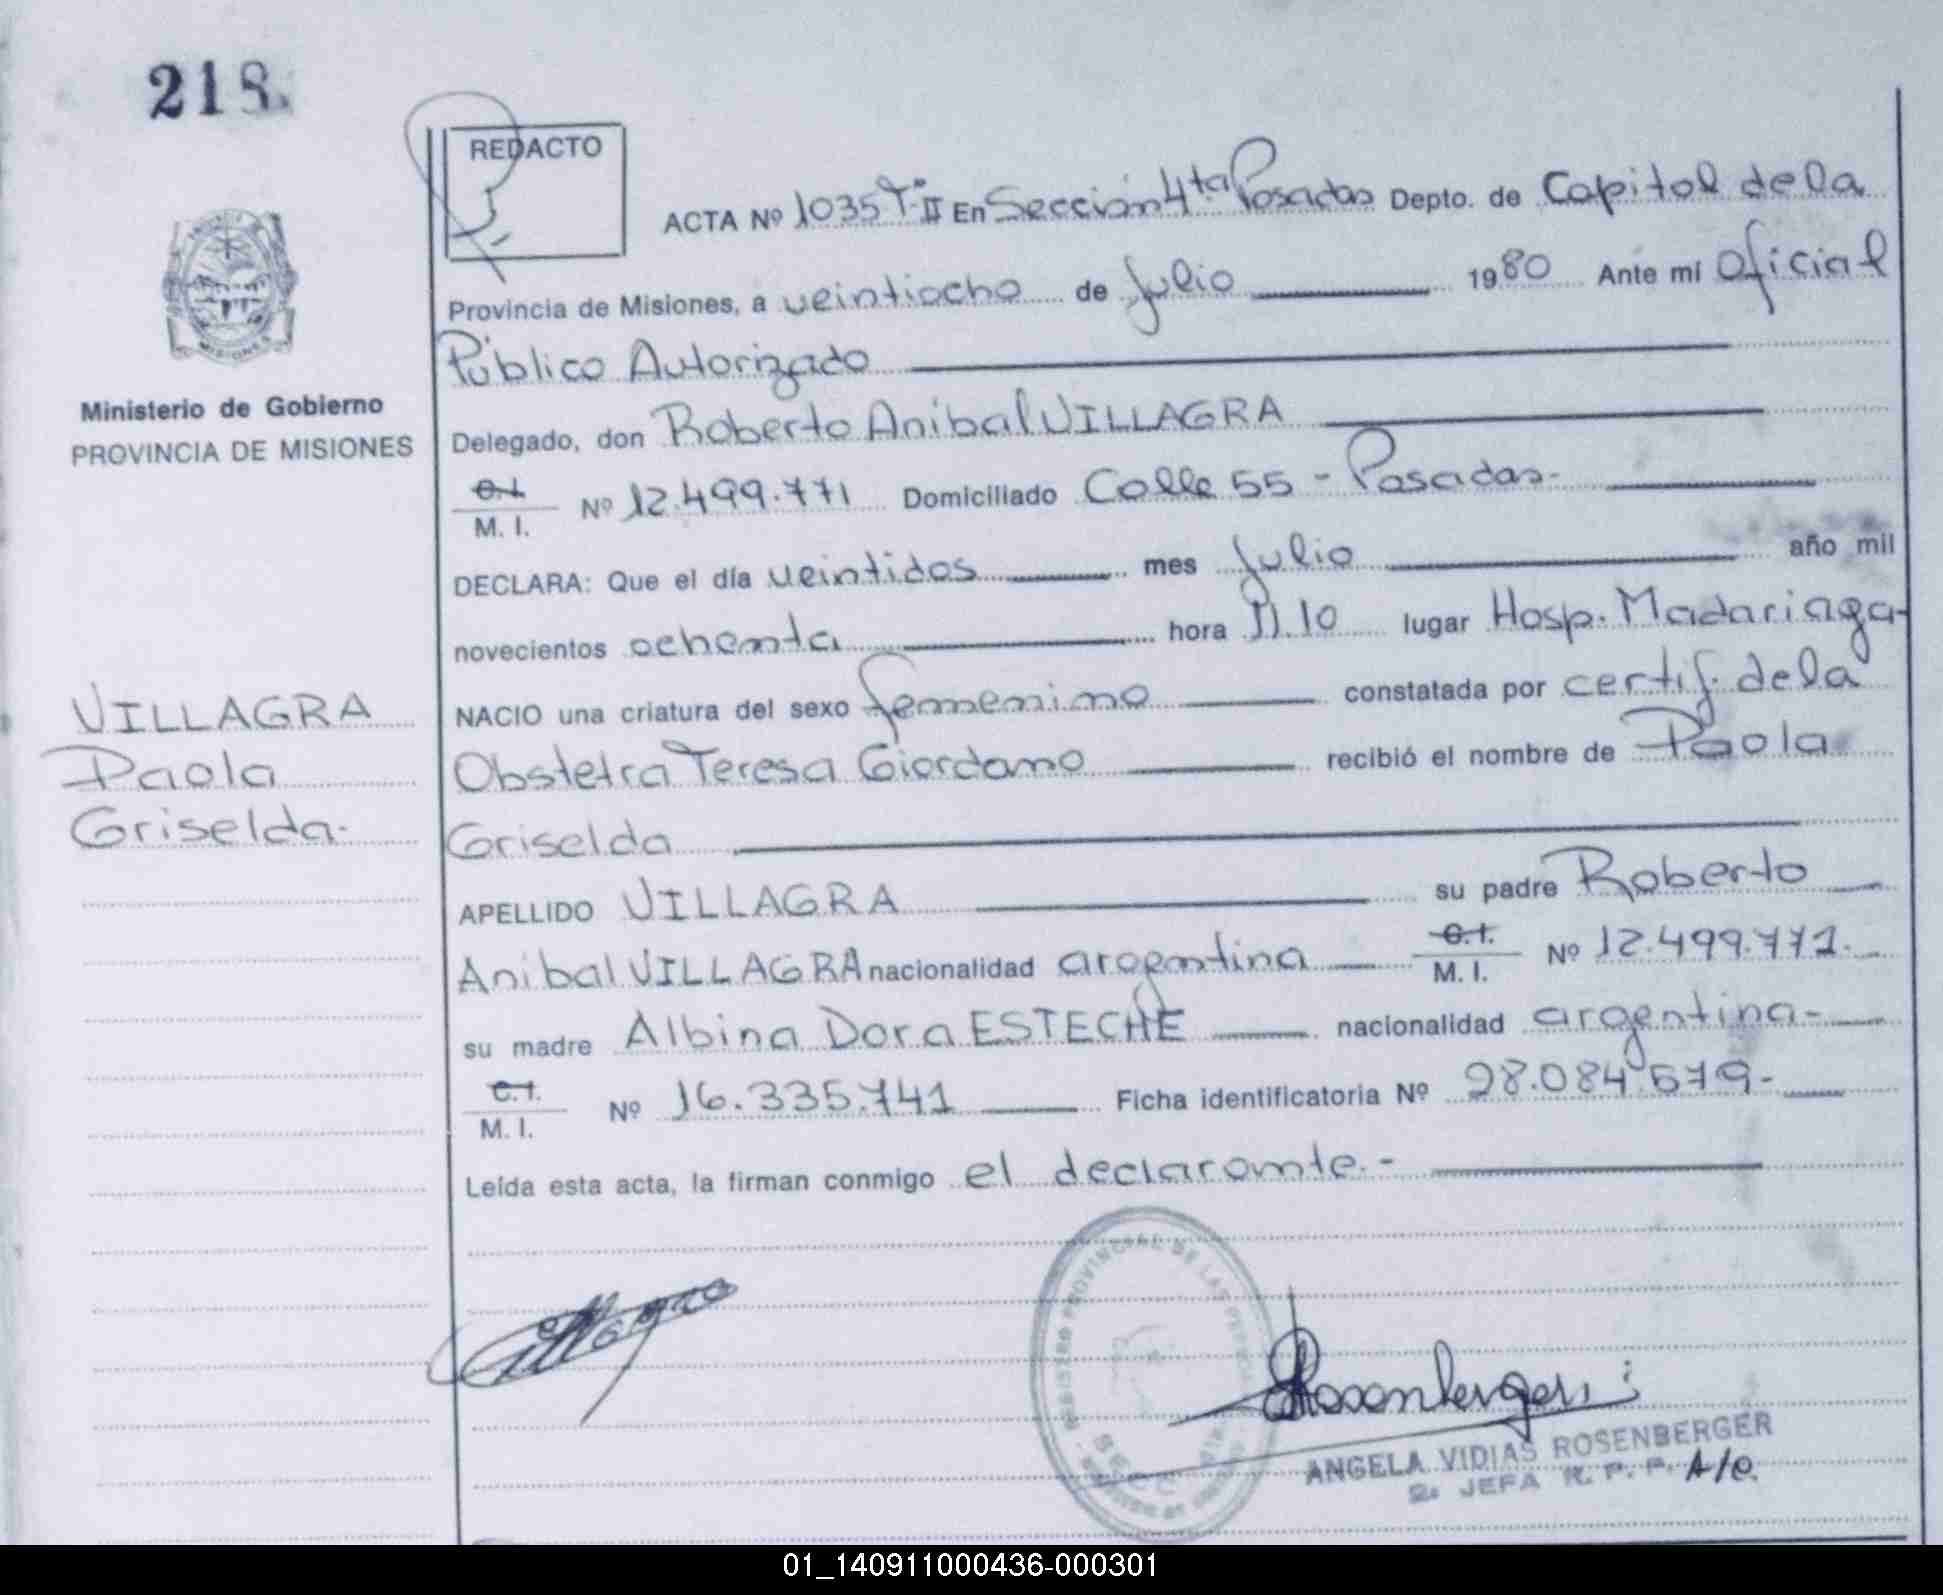 218
REDACTO
ACTA Nº 1035 T·II En Sección 4ta Posadas Depto. de Capital de la
Provincia de Misiones, a veintiocho de Julio 1980 Ante mí Oficial
Público Autorizado
MISIONES
Ministerio de Gobierno
PROVINCIA DE MISIONES
Delegado, don Roberto Anibal VILLAGRA
C.I. M. I. Nº 12.499.771 Domiciliado Calle 55 - Posadas.-
DECLARA: Que el día veintidos mes Julio año mil
novecientos ochenta hora 11.10 lugar Hosp. Madariaga-
NACIO una criatura del sexo femenino constatada por certif. de la
VILLAGRA
Paola
Griselda.-
Obstetra Teresa Giordano recibió el nombre de Paola
Griselda
APELLIDO VILLAGRA su padre Roberto
Anibal VILLAGRA nacionalidad argentina C.I. M. I. Nº 12.499.771.-
su madre Albina Dora ESTECHE nacionalidad argentina-
C.I. M. I. Nº 16.335.741 Ficha identificatoria Nº 28.084.579-
Leída esta acta, la firman conmigo el declarante.-
REGISTRO PROVINCIAL DE LAS PERSONAS
Rosenberger
ANGELA VIDIAS ROSENBERGER
2ª JEFA R. P. P. A/C
01_140911000436-000301